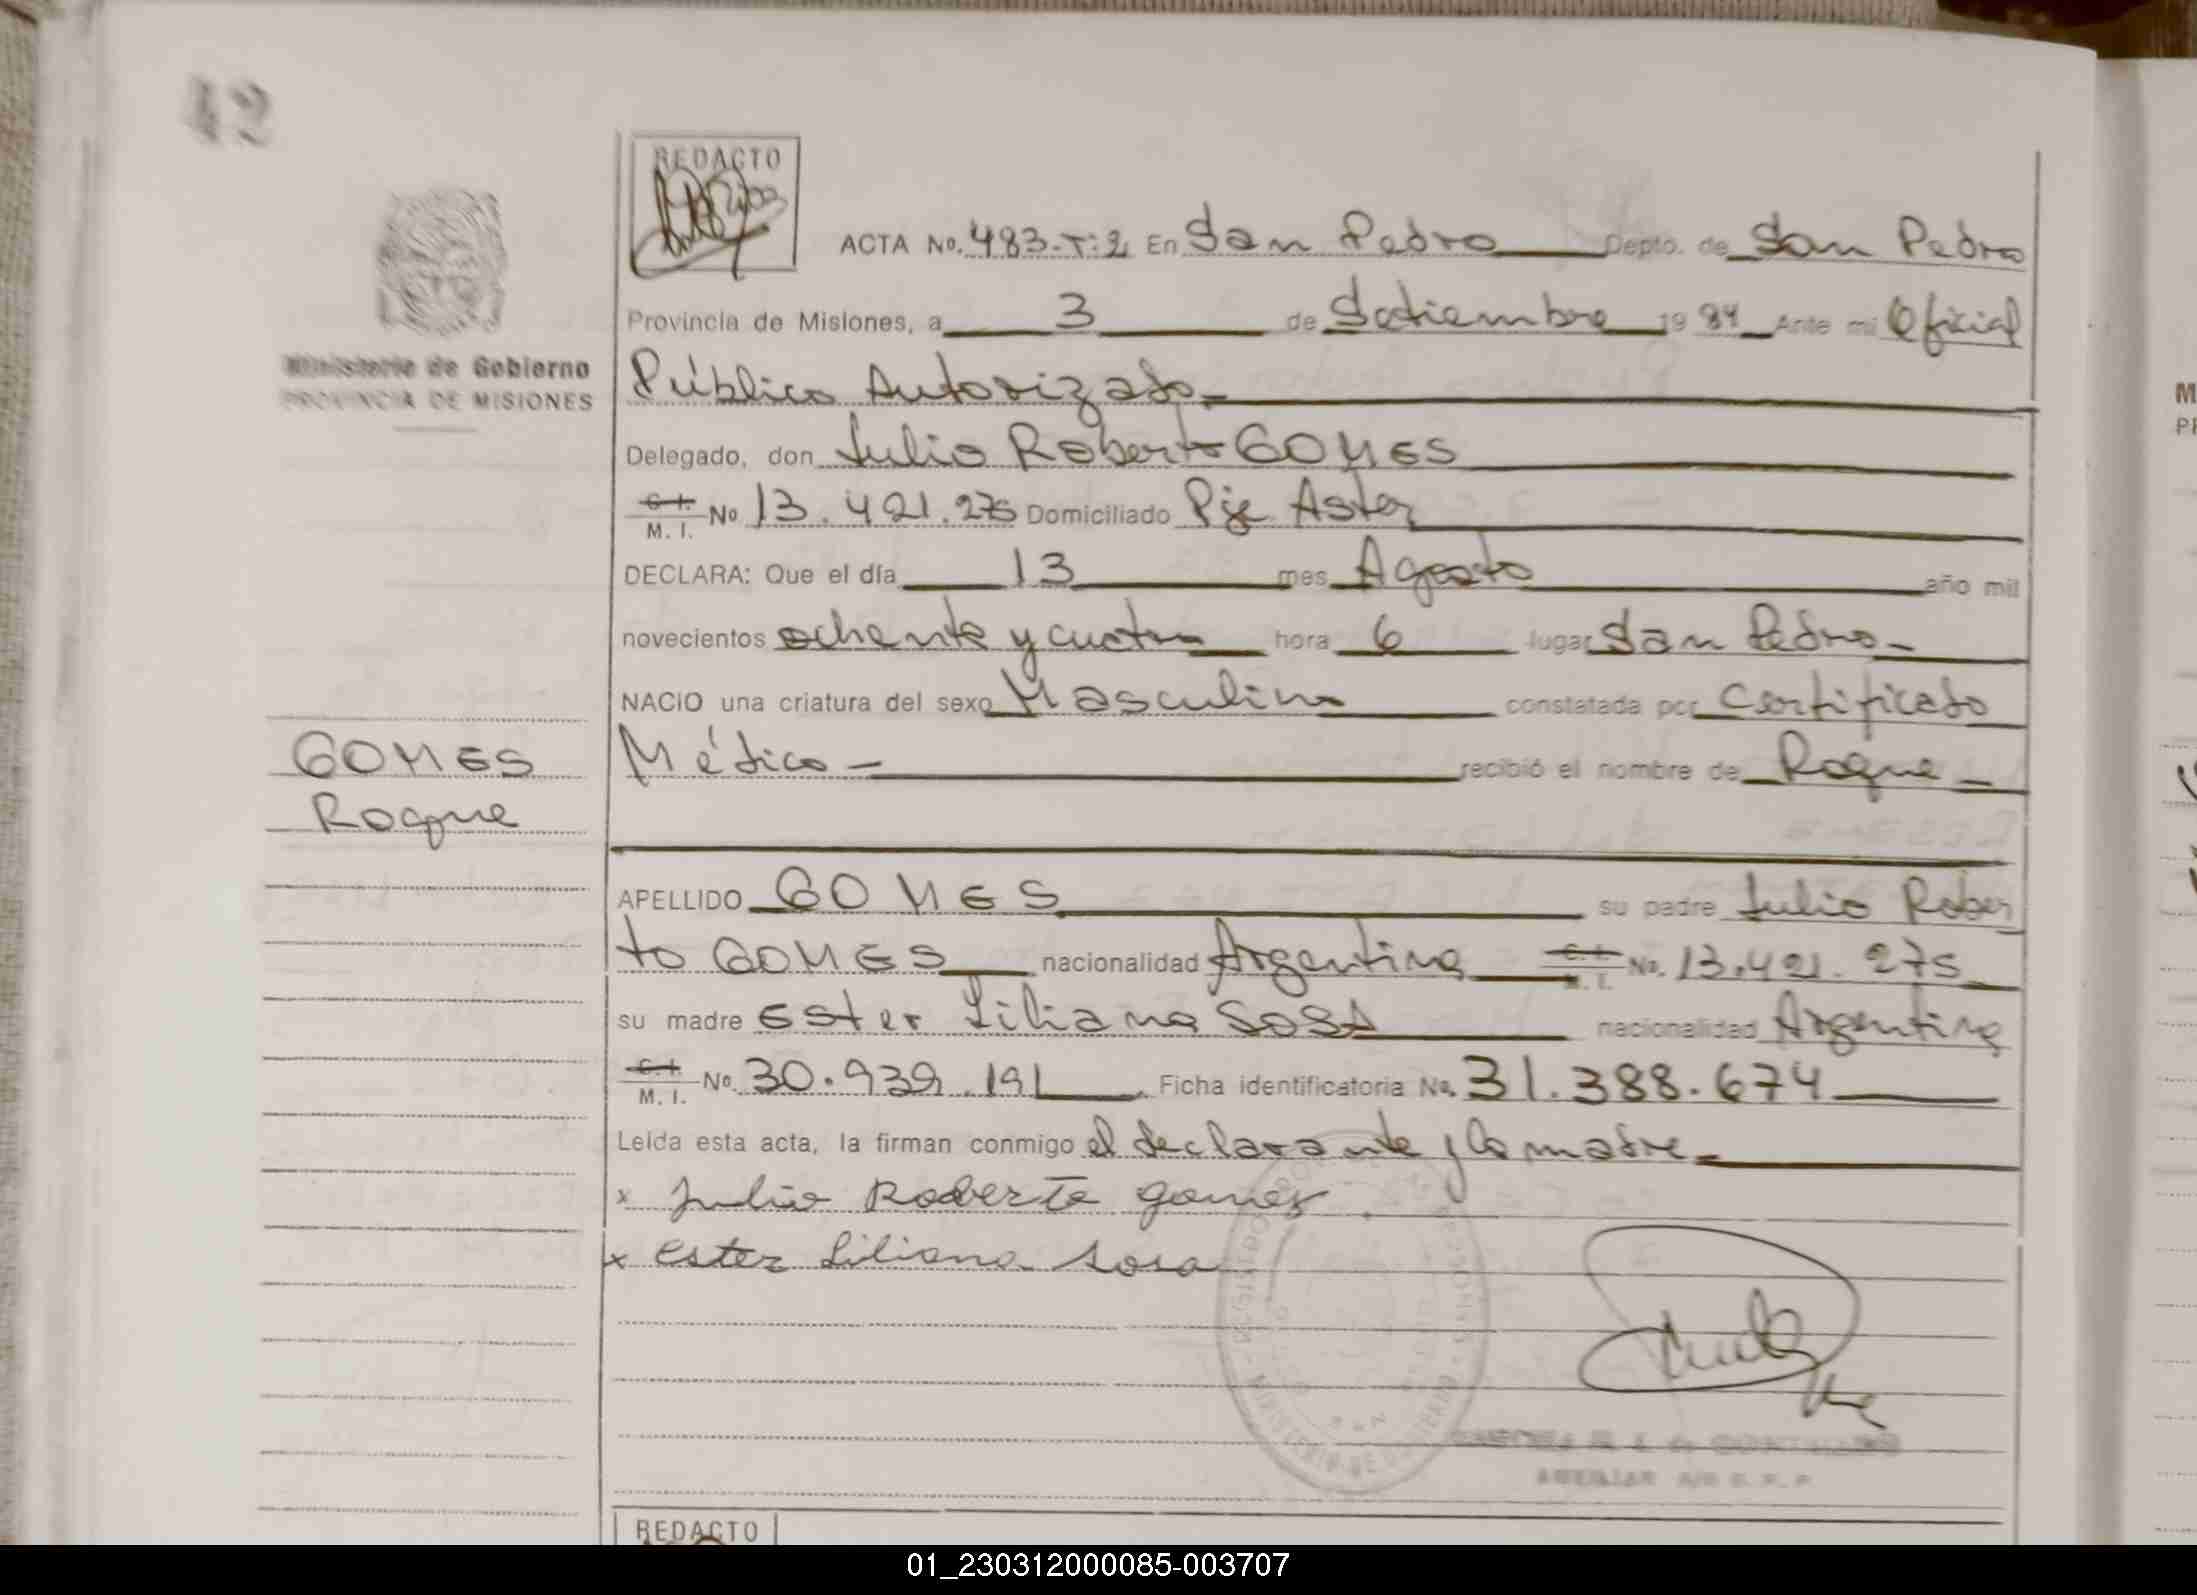 42
REDACTO
ACTA No. 483-T:2 En San Pedro Depto. de San Pedro
Provincia de Misiones, a 3 de Setiembre 1984 Ante mi Oficial
Ministerio de Gobierno
PROVINCIA DE MISIONES
Público Autorizado
Delegado, don Julio Roberto GOMES
C. I. M. I. No 13.421.275 Domiciliado Pje Aster
DECLARA: Que el día 13 mes Agosto año mil
novecientos ochenta y cuatro hora 6 lugar San Pedro
NACIO una criatura del sexo Masculino constatada por Certificado
Médico recibió el nombre de Roque
GOMES
Roque
APELLIDO GOMES su padre Julio Rober
to GOMES nacionalidad Argentina C. I. M. I. No. 13.421.275
su madre Ester Liliana SOSA nacionalidad Argentina
C. I. M. I. No. 30.939.191 Ficha identificatoria No. 31.388.674
Leída esta acta, la firman conmigo el declarante y la madre
x Julio Roberto gomes
x Ester Liliana Sosa
AUXILIAR
REDACTO
01_230312000085-003707